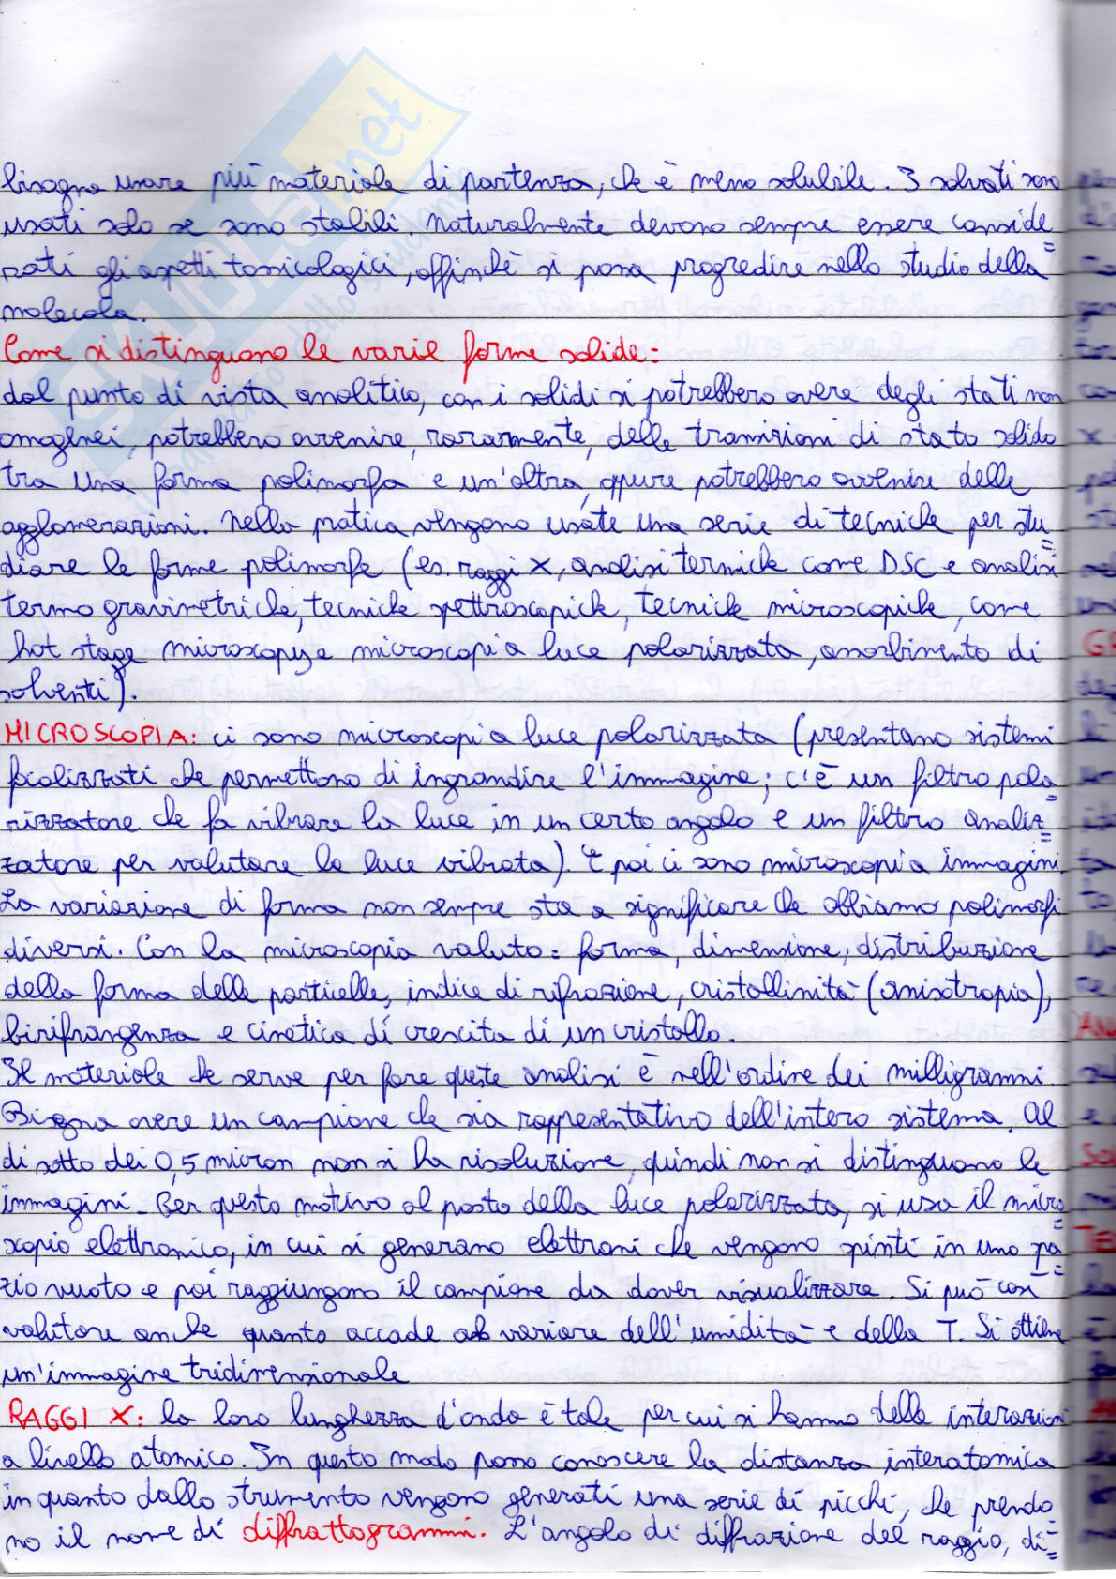 bisogna usare più materiale di partenza, che è meno solubile. I solvati sono
usati solo se sono stabili. Naturalmente devono sempre essere conside=
rati gli aspetti tossicologici, affinchè si possa progredire nello studio della
molecola.
Come si distinguono le varie forme solide:
dal punto di vista analitico, con i solidi si potrebbero avere degli stati non
omogenei, potrebbero avvenire, raramente, delle transizioni di stato solido
tra una forma polimorfa e un'altra, oppure potrebbero avvenire delle
agglomerazioni. Nella pratica vengono usate una serie di tecniche per stu=
diare le forme polimorfe (es. raggi X, analisi termiche come DSC e analisi
termogravimetriche, tecniche spettroscopiche, tecniche microscopiche, come
hot stage microscopy e microscopi a luce polarizzata, assorbimento di
solventi).
MICROSCOPIA: ci sono microscopi a luce polarizzata (presentano sistemi
focalizzati che permettono di ingrandire l'immagine; c'è un filtro pola=
rizzatore che fa vibrare la luce in un certo angolo e un filtro analiz=
zatore per valutare la luce vibrata). E poi ci sono microscopi a immagini.
La variazione di forma non sempre sta a significare che abbiamo polimorfi
diversi. Con la microscopia valuto: forma, dimensione, distribuzione
della forma delle particelle, indice di rifrazione, cristallinità (anisotropia),
birifrangenza e cinetica di crescita di un cristallo.
Il materiale che serve per fare queste analisi è nell'ordine dei milligrammi.
Bisogna avere un campione che sia rappresentativo dell'intero sistema. Al
di sotto dei 0,5 micron non si ha risoluzione, quindi non si distinguono le
immagini. Per questo motivo al posto della luce polarizzata, si usa il micro=
scopio elettronico, in cui si generano elettroni che vengono spinti in uno spa=
zio vuoto e poi raggiungono il campione da dover visualizzare. Si può così
valutare anche quanto accade al variare dell'umidità e della T. Si ottiene
un'immagine tridimensionale
RAGGI X: la loro lunghezza d'onda è tale per cui si hanno delle interazioni
a livello atomico. In questo modo posso conoscere la distanza interatomica
in quanto dallo strumento vengono generati una serie di picchi, che prendo=
no il nome di diffrattogrammi. L'angolo di diffrazione del raggio, di=